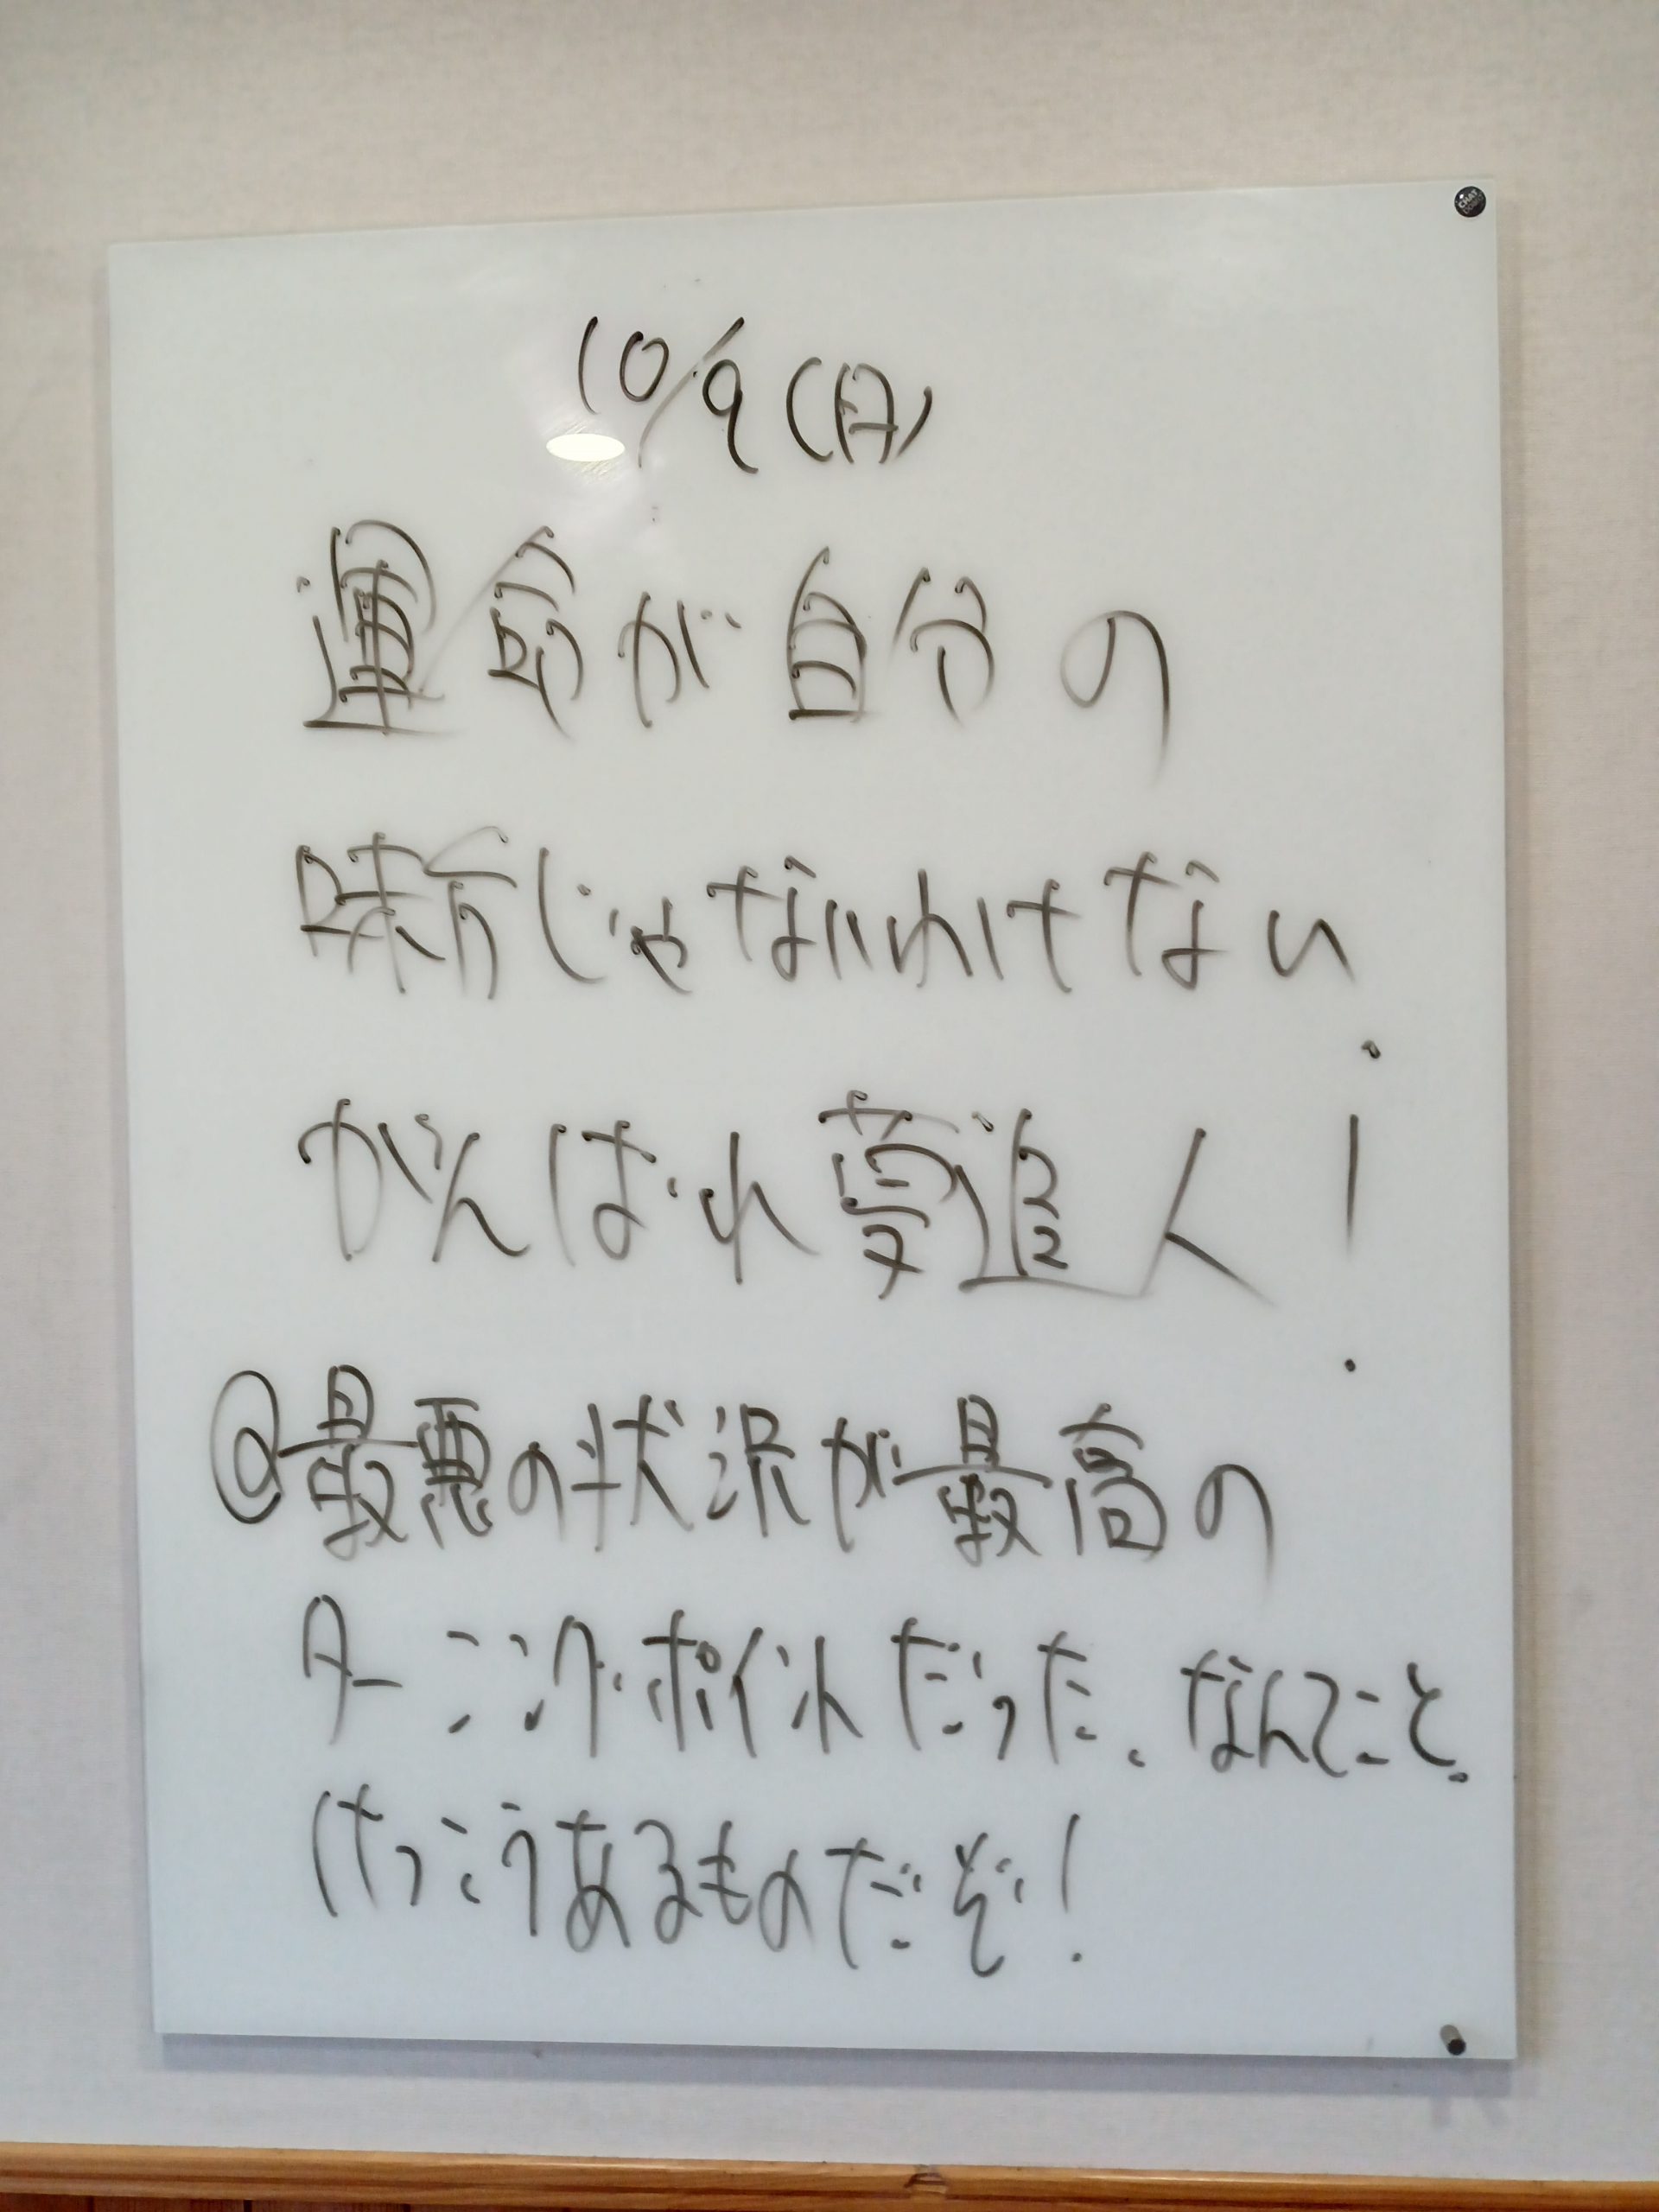 10/9(月)
運命が自分の
味方じゃないわけない
がんばれ夢追人!
@最悪の状況が最高の
ターニングポイントだった、なんてこと。
けっこうあるものだぞ!